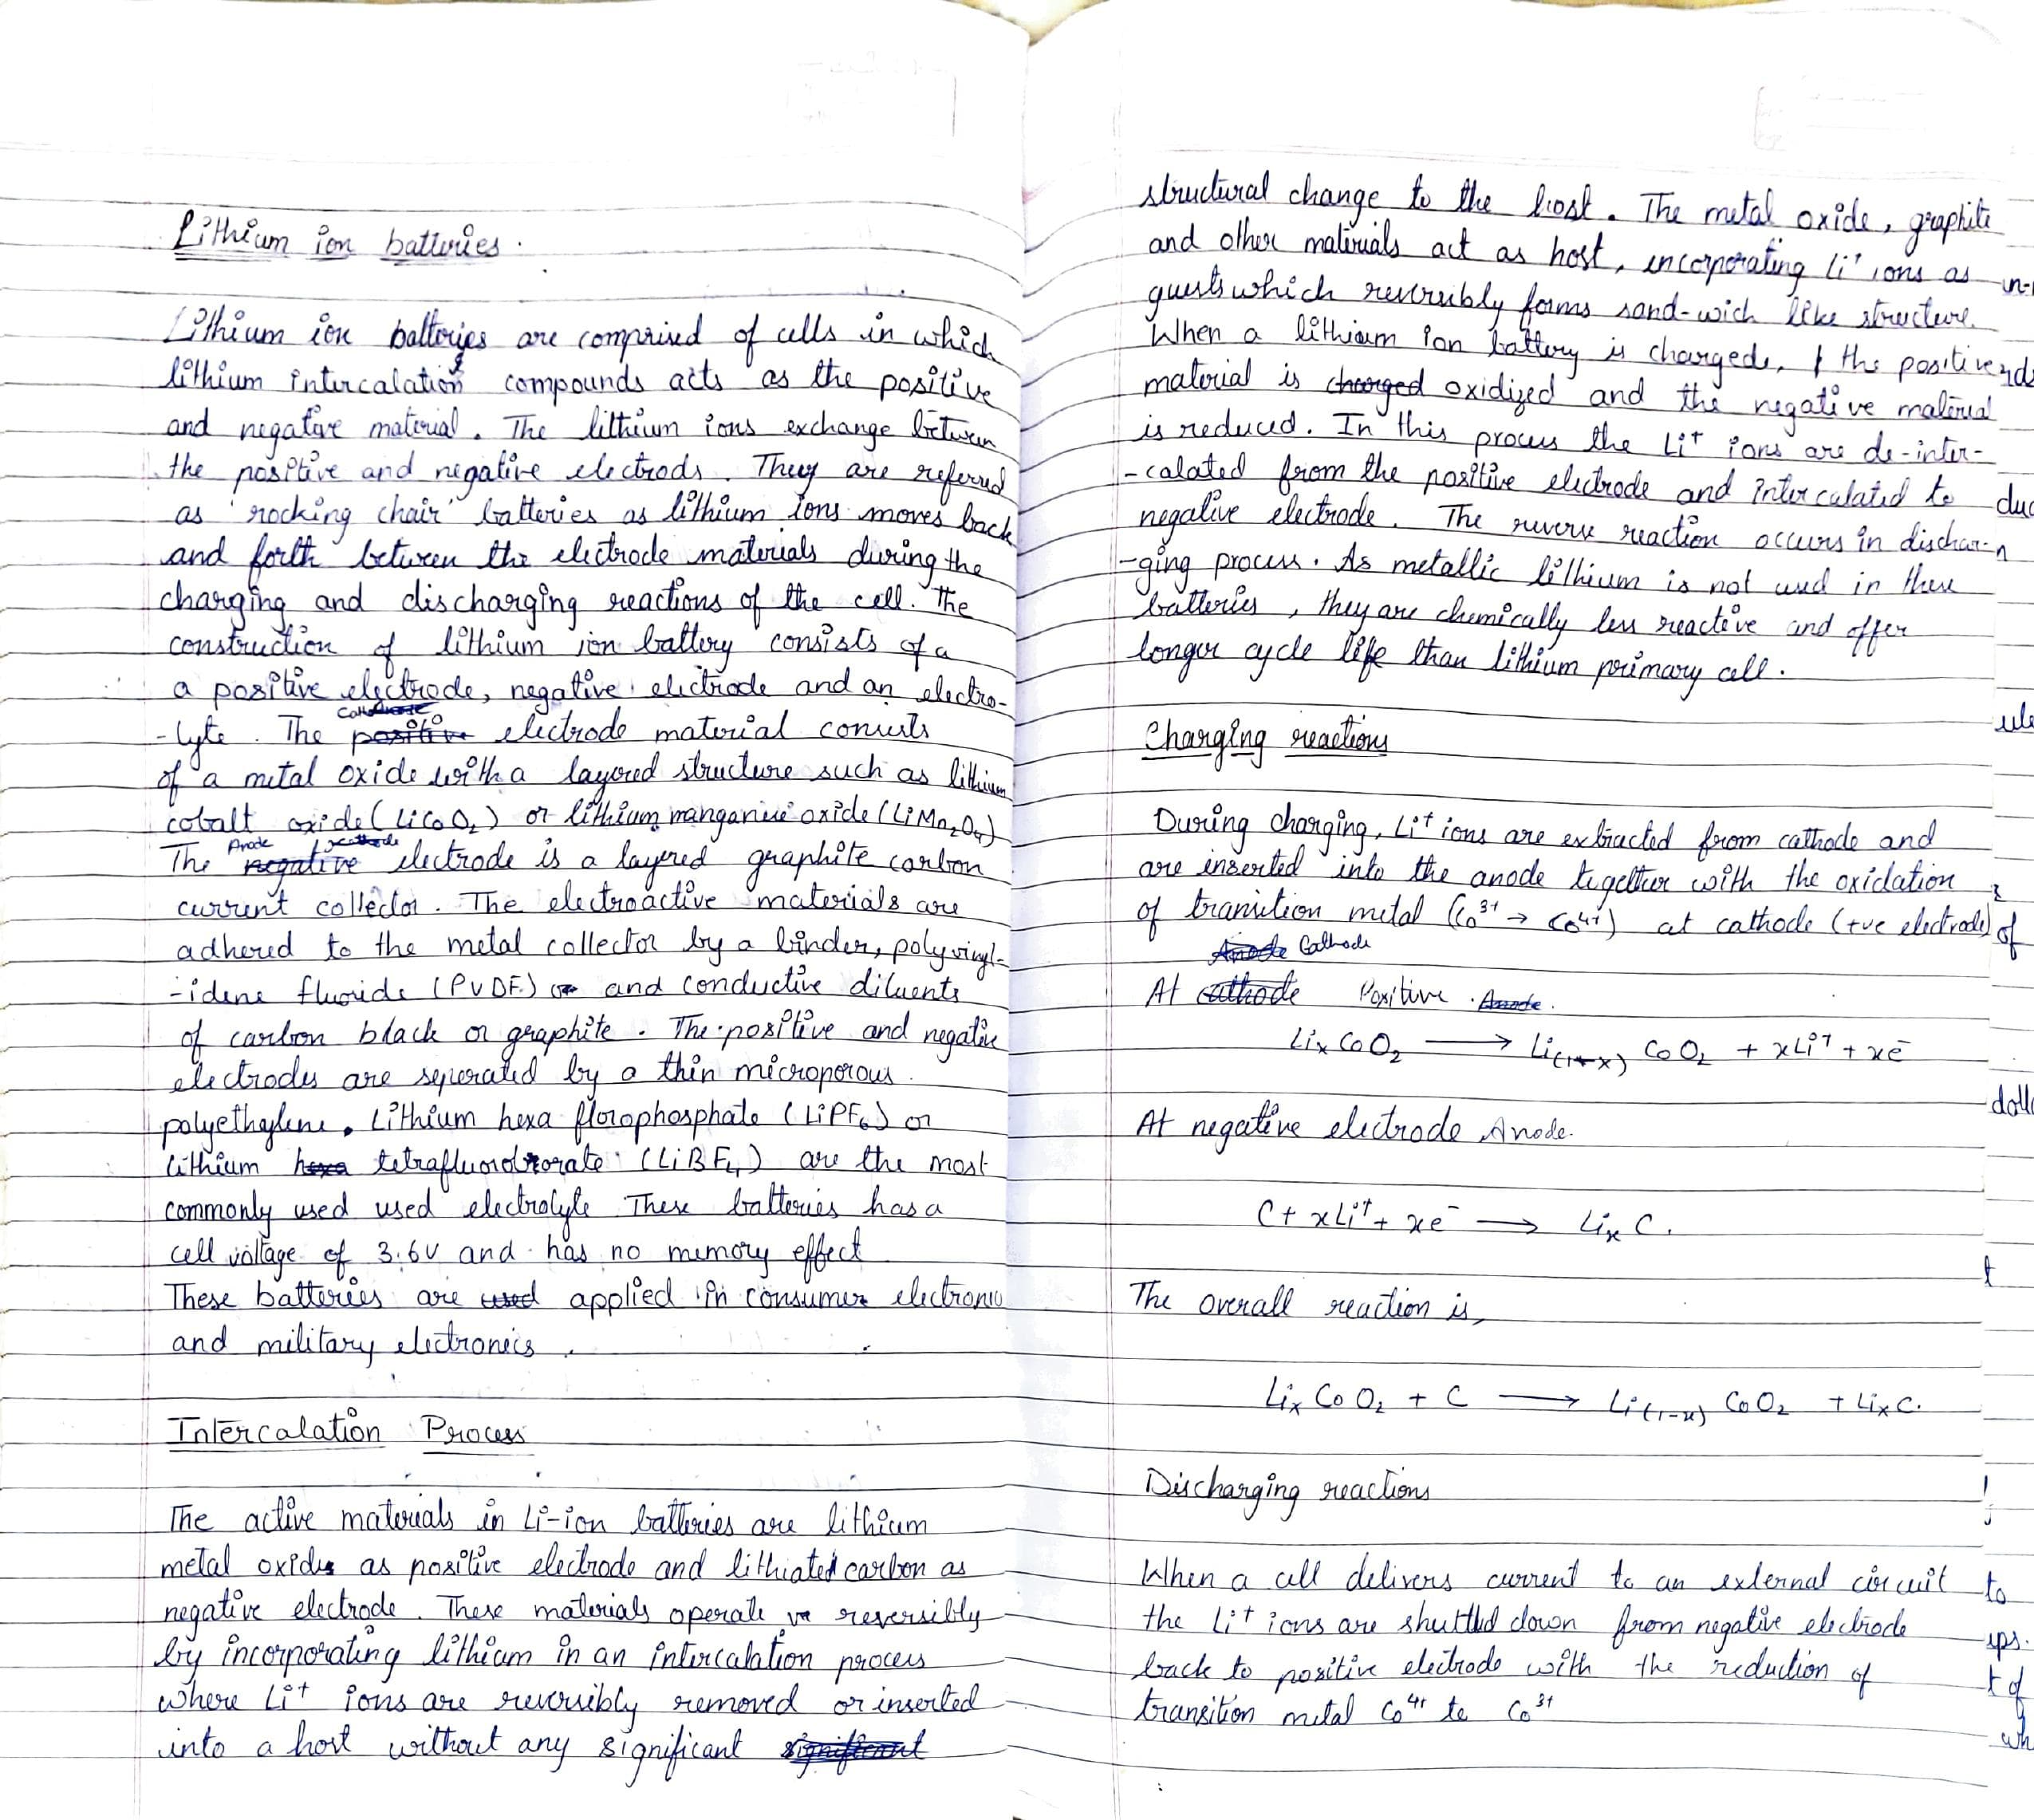 Lithium ion batteries.
Lithium ion batteries are comprised of cells in which
lithium intercalation compounds acts as the positive
and negative material. The lithium ions exchange between
the positive and negative electrods. They are referred
as 'rocking chair' batteries as lithium ions moves back
and forth between the electrode materials during the
charging and discharging reactions of the cell. The
construction of lithium ion battery consists of a
a positive electrode, negative electrode and an electro-
-lyte. The positive electrode material consists
of a metal oxide with a layered structure such as lithium
cobalt oxide (LiCoO₂) or lithium manganise oxide (LiMn₂O₄)
Anode
The negative electrode is a layered graphite carbon
current collector. The electroactive materials are
adhered to the metal collector by a binder, polyvinyl-
-idene fluoride (PVDF) or and conductive diluents
of carbon black or graphite. The positive and negative
electrodes are seperated by a thin microporous
polyethylene. Lithium hexa florophosphate (LiPF₆) or
lithium hexa tetrafluoroborate (LiBF₄) are the most
commonly used used electrolyte These batteries has a
cell voltage of 3.6V and has no memory effect
These batteries are used applied in consumer electronic
and military electronics.
Intercalation Process
The active materials in Li-ion batteries are lithium
metal oxides as positive electrode and lithiated carbon as
negative electrode. These materials operate reversibly
by incorporating lithium in an intercalation process
where Li⁺ ions are reversibly removed or inserted
into a host without any significant significant
structural change to the host. The metal oxide, graphite
and other materials act as host, incorporating Li⁺ ions as
guests which reversibly forms sand-wich like structure.
When a lithium ion battery is charged, the positive
material is charged oxidized and the negative material
is reduced. In this process the Li⁺ ions are de-inter-
-calated from the positive electrode and intercalated to
negative electrode. The reverse reaction occurs in dischar-
-ging process. As metallic lithium is not used in these
batteries, they are chemically less reactive and offer
longer cycle life than lithium primary cell.
Charging reactions
During charging, Li⁺ ions are extracted from cathode and
are inserted into the anode together with the oxidation
of transition metal (Co³⁺ → Co⁴⁺) at cathode (+ve electrode)
Anode Cathode
At cathode Positive Anode.
LiₓCoO₂ ⟶ Li₍₁₋ₓ₎ CoO₂ + xLi⁺ + xe⁻
At negative electrode Anode.
C + xLi⁺ + xe⁻ ⟶ LiₓC.
The overall reaction is,
LiₓCoO₂ + C ⟶ Li₍₁₋ₓ₎ CoO₂ + LiₓC.
Discharging reactions
When a cell delivers current to an external circuit
the Li⁺ ions are shuttled down from negative electrode
back to positive electrode with the reduction of
transition metal Co⁴⁺ to Co³⁺